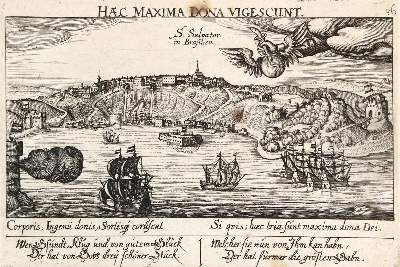 HÆC MAXIMA DONA VIGESCUNT.
S. Salvator.
in Brasilien.
Corporis, Ingenii donis, Sortisq; coruscet
Si quis; haec tria sunt maxima dona Dei.
Wer Gsundt, Klug und von gutem Glück
Welcher sie nun von Ihm kan habn,
Der hat von Gott drey schöner Stück
Der hat fürwar die grösten Gabn.